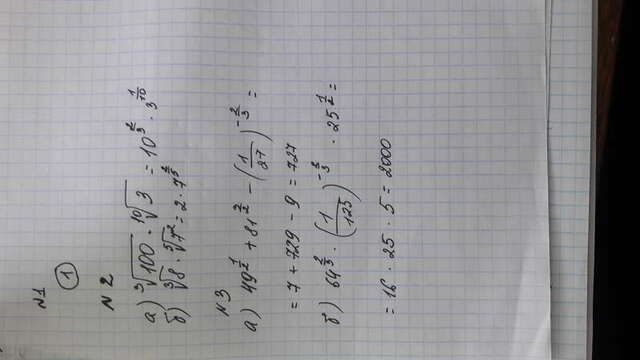 N1
①
N2
а) ∛100 · ¹⁰√3 = 10^(2/3) · 3^(1/10)
б) ∛8 · ⁵√7² = 2 · 7^(2/5)
N3
а) 49^(1/2) + 81^(3/2) − (1/27)^(−2/3) =
= 7 + 729 − 9 = 727
б) 64^(2/3) · (1/125)^(−2/3) · 25^(1/2) =
= 16 · 25 · 5 = 2000